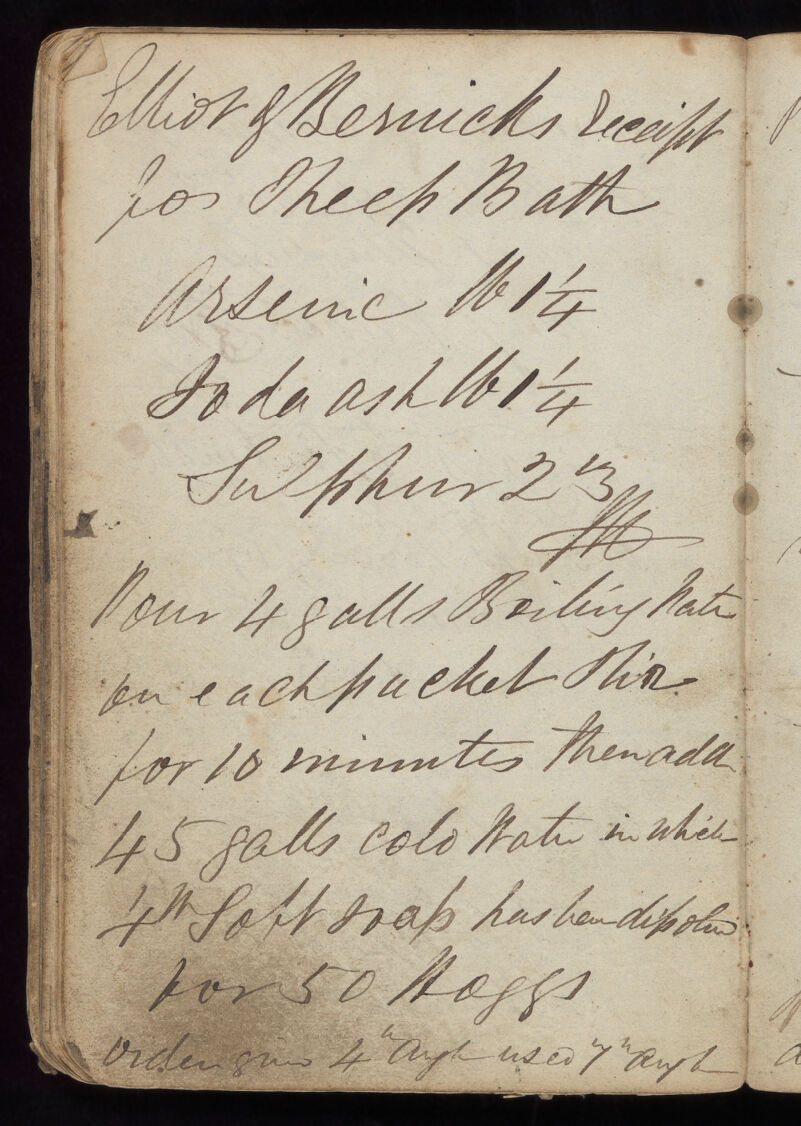 Elliot & Berwicks receipt
for Sheep Bath
Arsenic lb 1 1/4
Soda ash lb 1 1/4
Sulphur 2 oz
Pour 4 galls Boiling Water
on each packet Stir
for 10 minutes then add
45 galls cold Water in which
1/4 lb Soft Soap has been dissolved
for 50 Hoggs
order given 4th Augt used 7th Augt